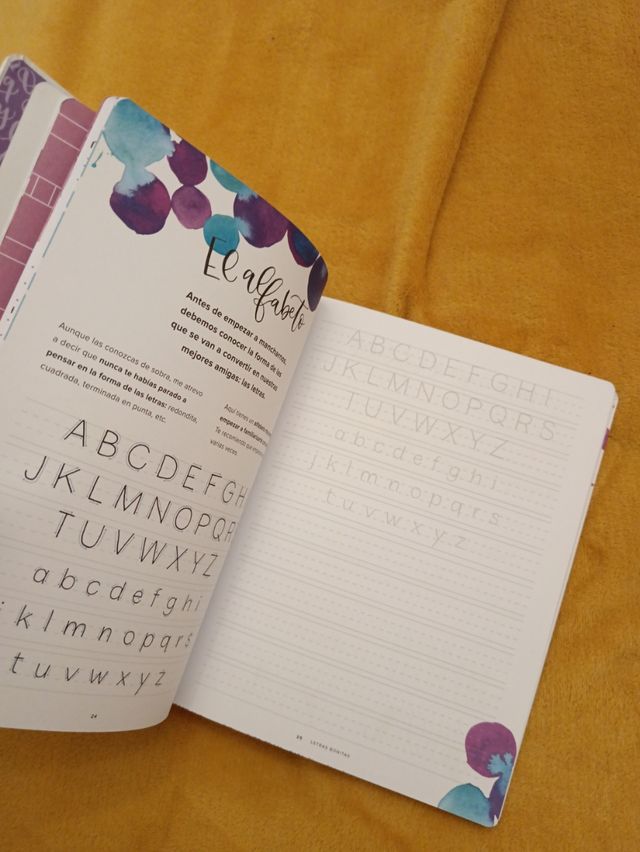 El alfabeto
Antes de empezar a mancharnos,
debemos conocer la forma de las
que se van a convertir en nuestras
mejores amigas: las letras.
Aunque las conozcas de sobra, me atrevo
a decir que nunca te habías parado a
pensar en la forma de las letras: redondita,
cuadrada, terminada en punta, etc.
Aquí tienes un
empezar a familiarizarte
Te recomiendo que
varias veces
A B C D E F G H
J K L M N O P Q R
T U V W X Y Z
a b c d e f g h i
k l m n o p q r s
t u v w x y z
24
A B C D E F G H I
J K L M N O P Q R S
T U V W X Y Z
a b c d e f g h i
j k l m n o p q r s
t u v w x y z
25 LETRAS BONITAS